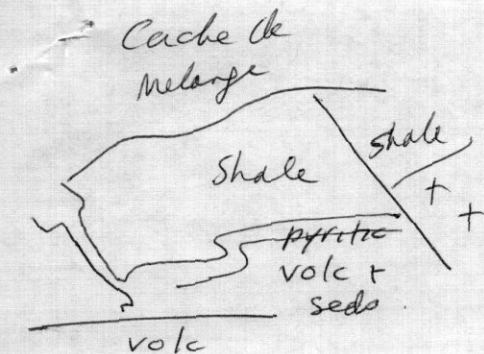 Cache Ck
Melange
Shale
shale
+
+
pyritic
volc +
seds
volc